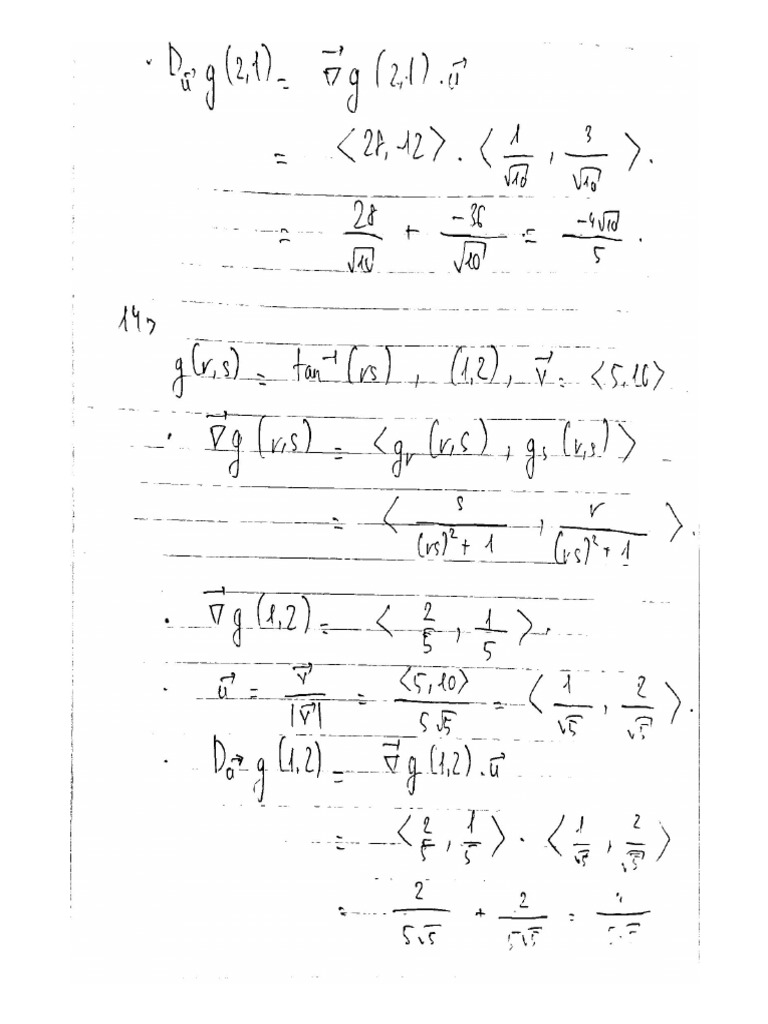 · D_u⃗ g(2,1) = ∇⃗g(2,1)·u⃗
= <28,-12> · <1/√10, 3/√10>.
= 28/√10 + -36/√10 = -4√10/5.
14>
g(r,s) = tan⁻¹(rs), (1,2), v⃗ = <5,10>
· ∇⃗g(r,s) = <g_r(r,s), g_s(r,s)>
= <s/((rs)²+1), r/((rs)²+1)>.
· ∇⃗g(1,2) = <2/5, 1/5>.
· u⃗ = v⃗/|v⃗| = <5,10>/5√5 = <1/√5, 2/√5>.
· D_u⃗ g(1,2) = ∇⃗g(1,2)·u⃗
= <2/5, 1/5> · <1/√5, 2/√5>
= 2/5√5 + 2/5√5 = /5√5